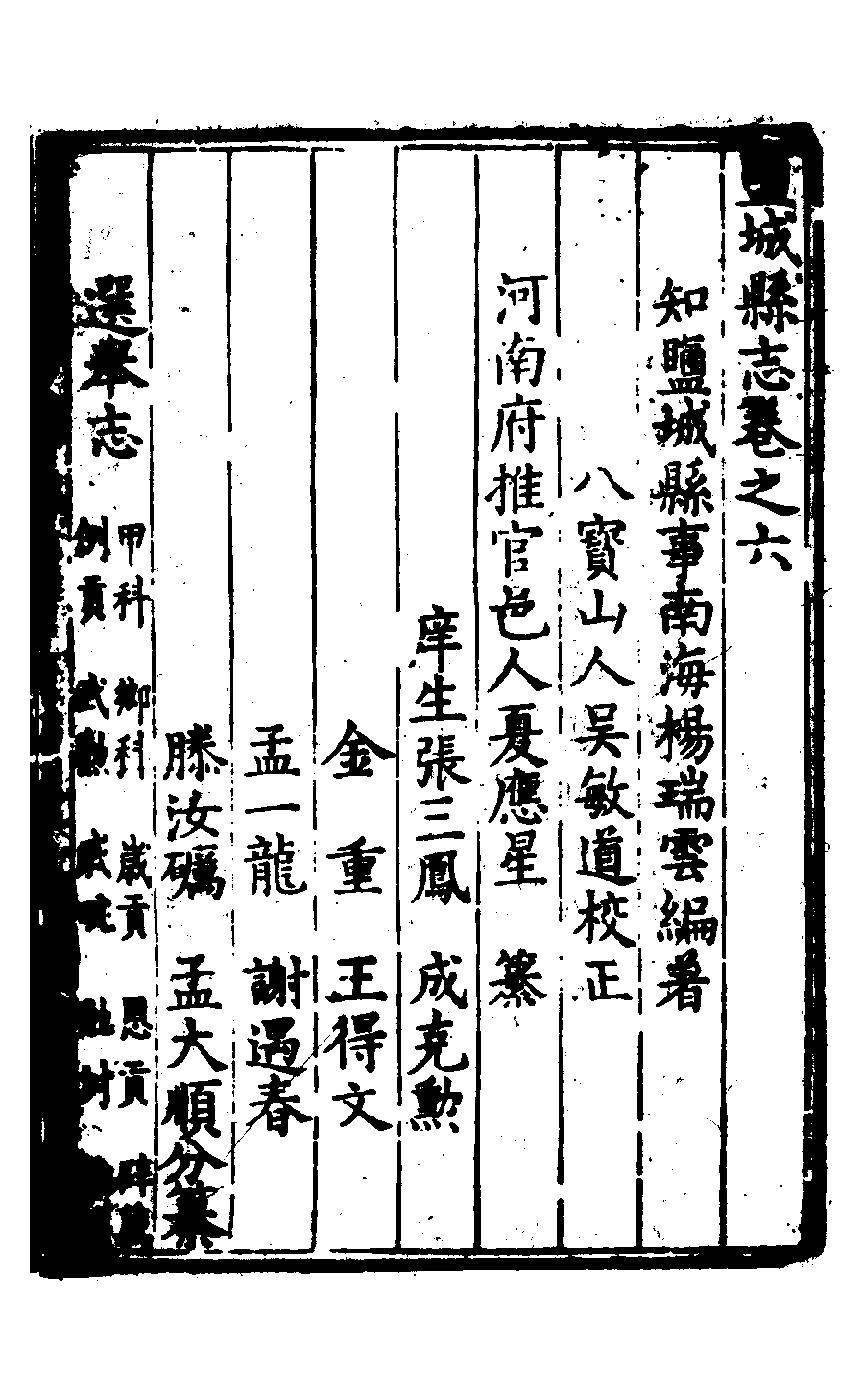 鹽城縣志卷之六
知鹽城縣事南海楊瑞雲編著
八寶山人吳敏道校正
河南府推官邑人夏應星 纂
庠生張三鳳 成克勲
金重 王得文
孟一龍 謝遇春
滕汝礪 孟大順分纂
選舉志 甲科 鄉科 歲貢 恩貢 辟薦
例貢 武勲 戚畹 封